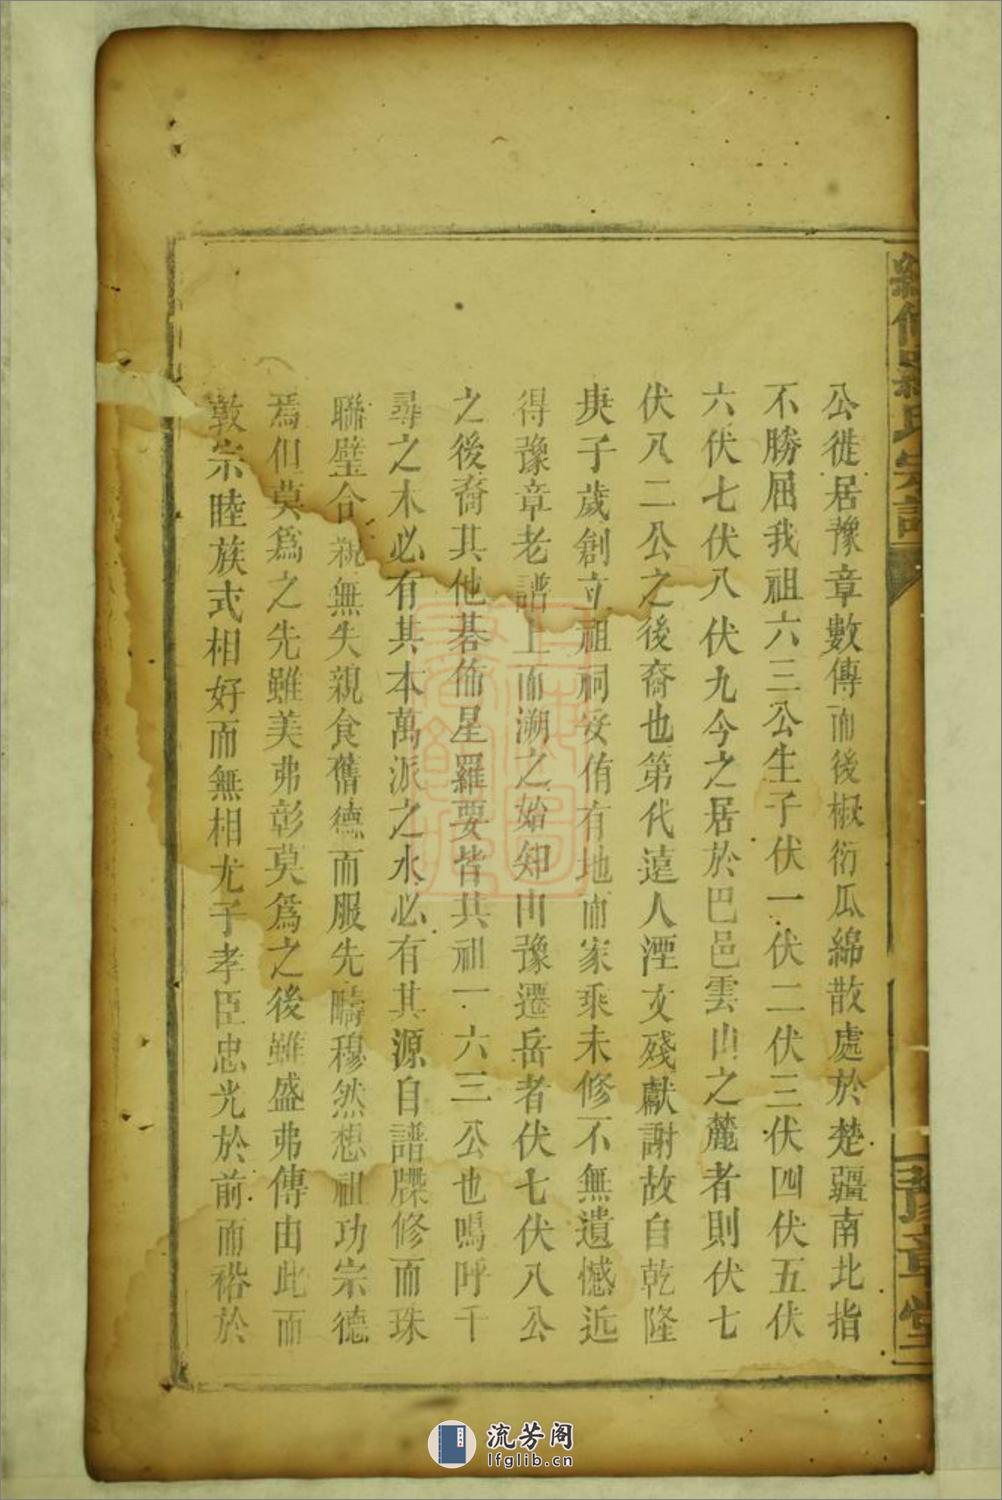 續修羅氏宗譜
豫章堂
公徙居豫章數傳而後椒衍瓜綿散處於楚疆南北指
不勝屈我祖六三公生子伏一伏二伏三伏四伏五伏
六伏七伏八伏九今之居於巴邑雲山之麓者則伏七
伏八二公之後裔也第代遠人湮文殘獻謝故自乾隆
庚子歲創立祖祠妥侑有地而家乘未修不無遺憾近
得豫章老譜上而溯之始知由豫遷岳者伏七伏八公
之後裔其他碁佈星羅要皆共祖一六三公也嗚呼千
尋之木必有其本萬派之水必有其源自譜牒修而珠
聯璧合親無失親食舊德而服先疇穆然想祖功宗德
焉但莫為之先雖美弗彰莫為之後雖盛弗傳由此而
敦宗睦族式相好而無相尤子孝臣忠光於前而裕於
流芳阁
lfglib.cn